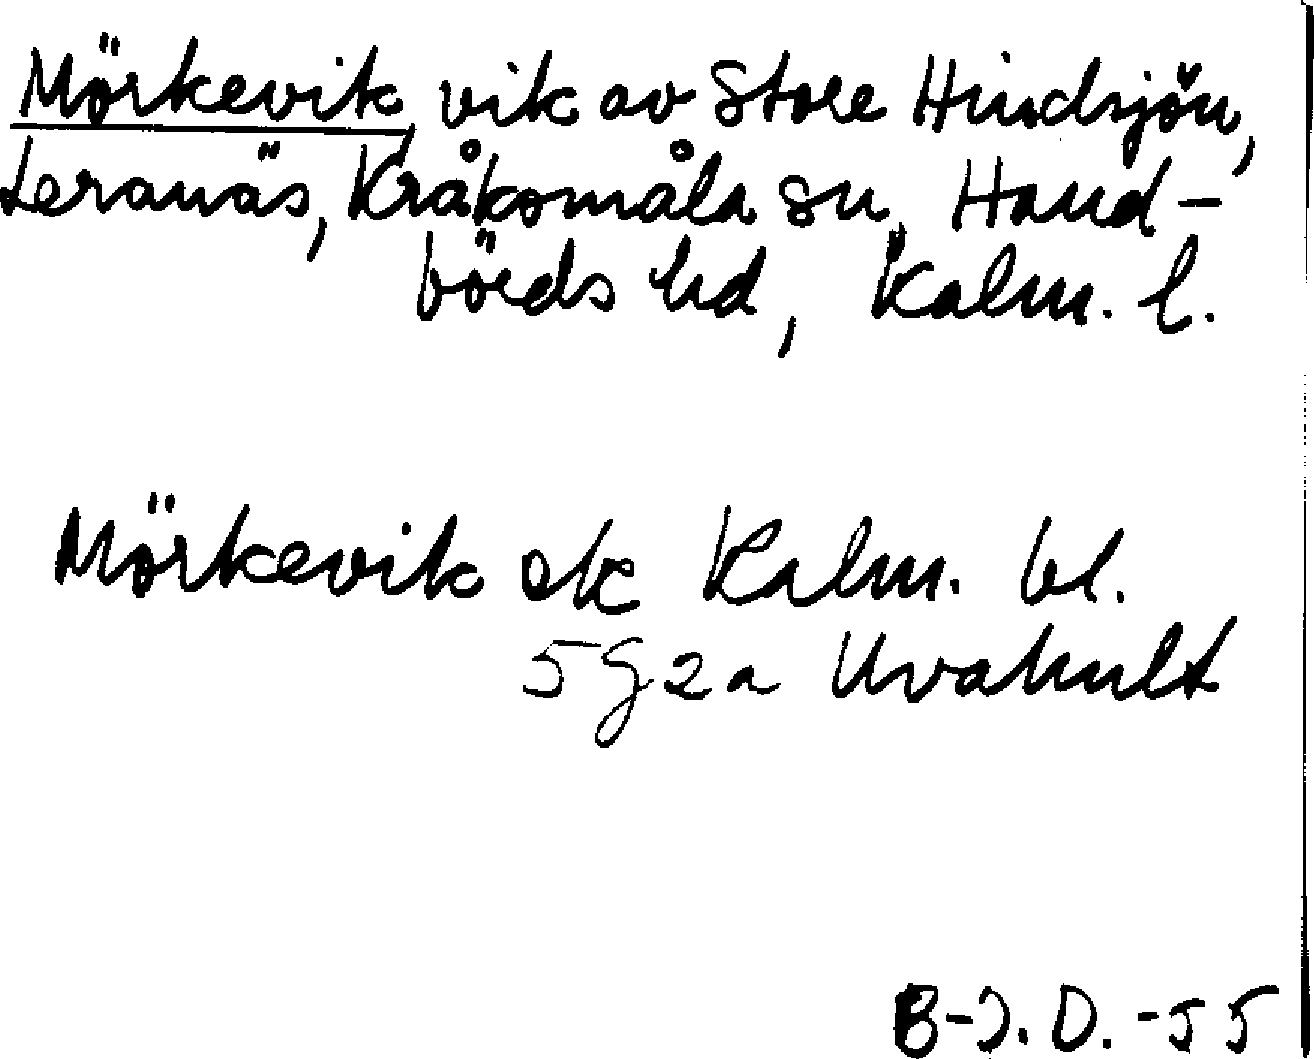 Mörkevik, vik av Store Hindsjön,
Leranäs, Kråksmåla sn, Hand-
börds hd, Kalm. l.
Mörkevik ek Kalm. bl.
5G2a Uvahult
B-J. D. -55